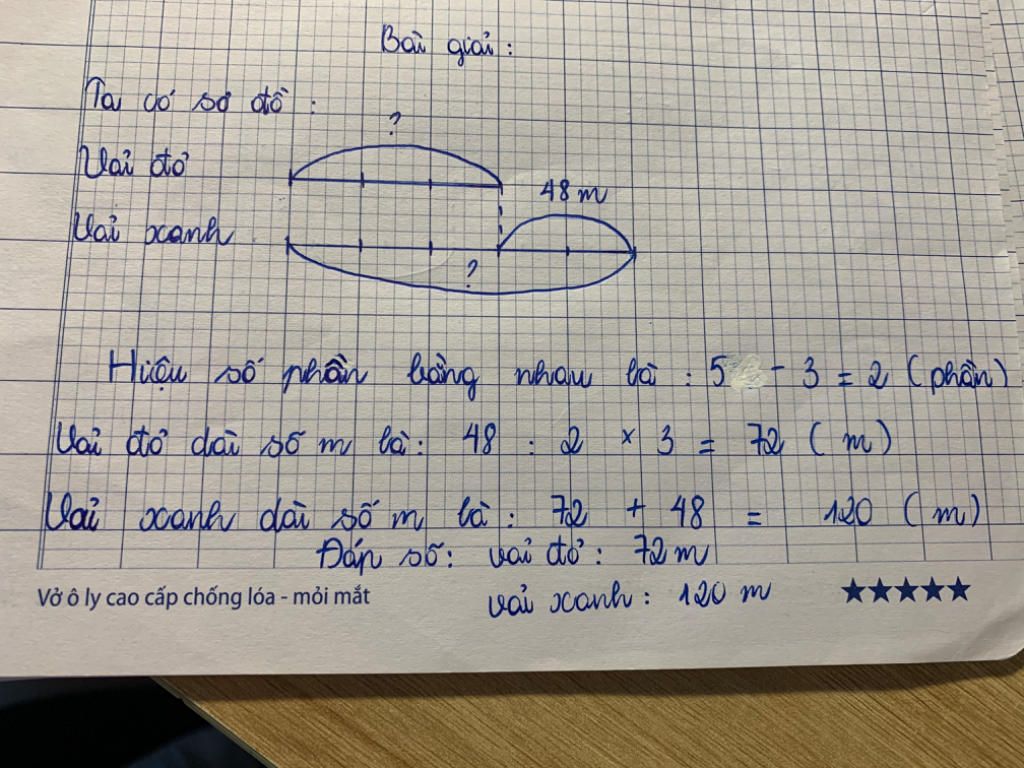 Bài giải:
Ta có sơ đồ:
?
Vải đỏ
48 m
Vải xanh
?
Hiệu số phần bằng nhau là: 5 - 3 = 2 (phần)
Vải đỏ dài số m là: 48 : 2 × 3 = 72 (m)
Vải xanh dài số m là: 72 + 48 = 120 (m)
Đáp số: vải đỏ: 72 m
vải xanh: 120 m
Vở ô ly cao cấp chống lóa - mỏi mắt